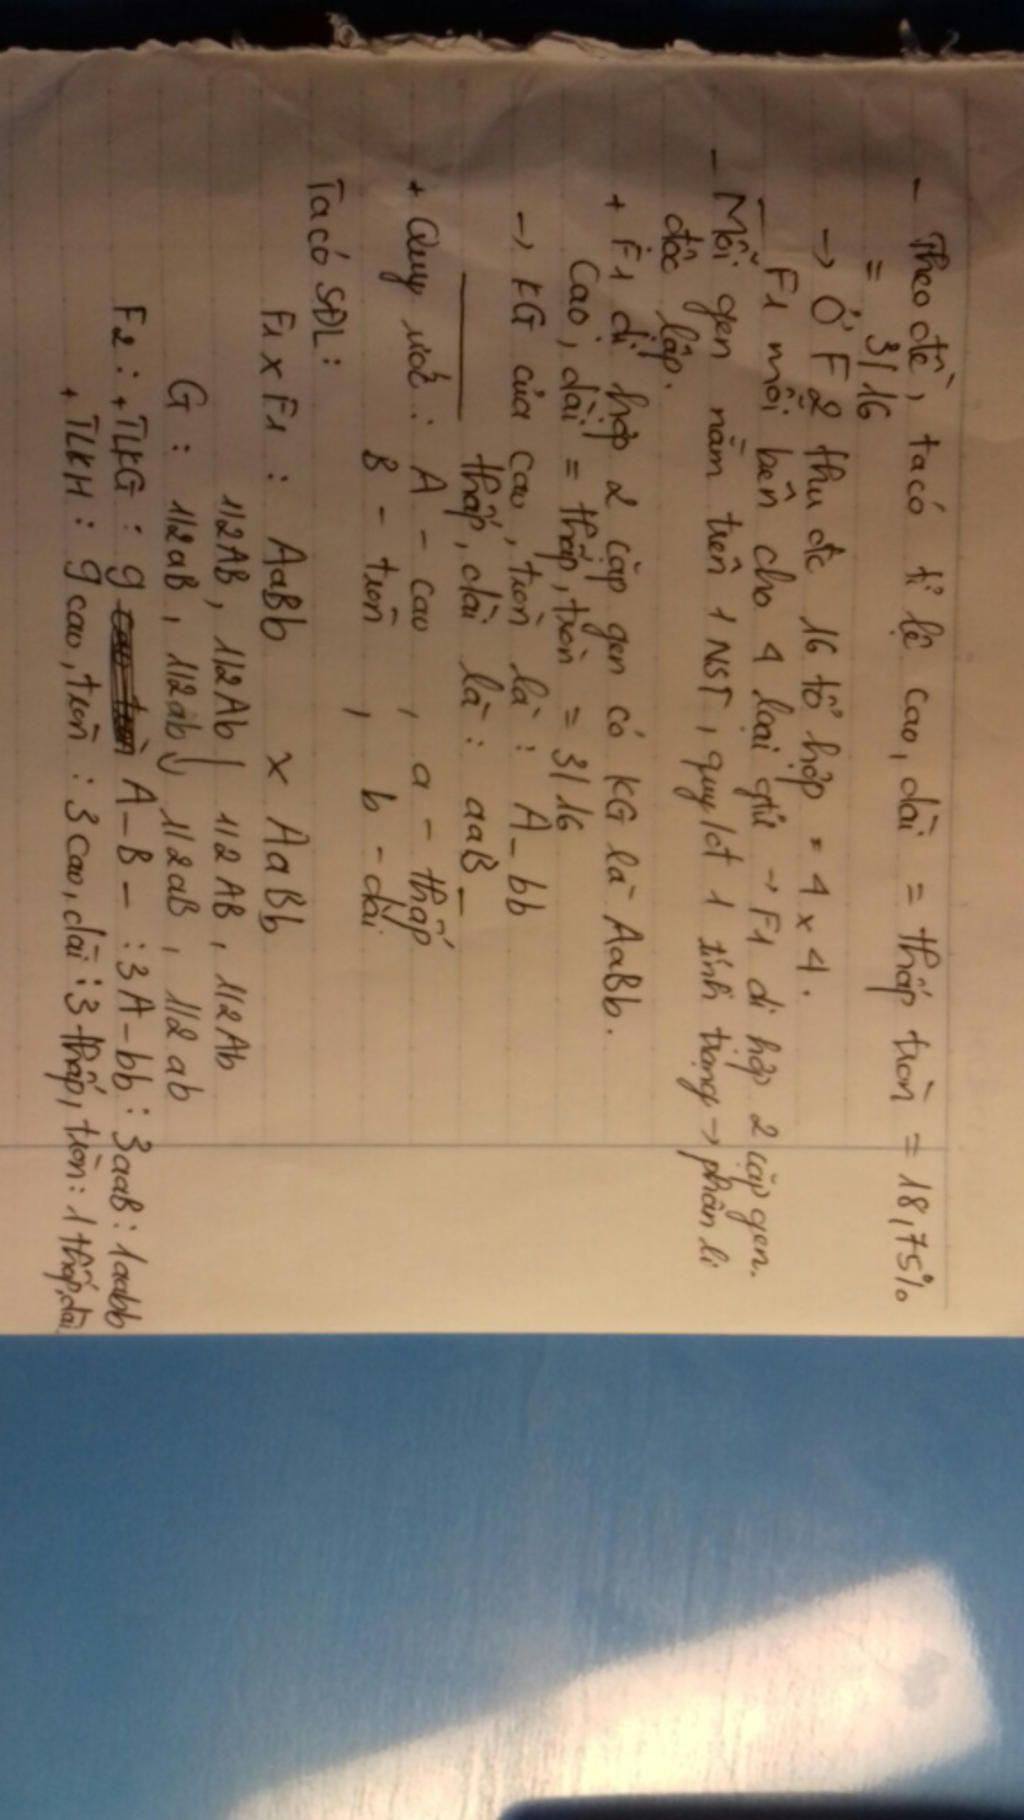 - Theo đề, ta có tỉ lệ cao, dài = thấp tròn = 18,75%
= 3/16
→ Ở F2 thu đc 16 tổ hợp = 4 x 4.
F1 mỗi bên cho 4 loại gtử → F1 dị hợp 2 cặp gen.
- Mỗi gen nằm trên 1 NST, quy đt 1 tính trạng → phân li
độc lập.
+ F1 dị hợp 2 cặp gen có KG là AaBb.
Cao, dài = thấp, tròn = 3/16
→ KG của cao, tròn là: A_bb
thấp, dài là: aaB_
+ Quy ước: A - cao , a - thấp
B - tròn , b - dài
Ta có SĐL:
F1 x F1 : AaBb x AaBb
1/2AB, 1/2Ab | 1/2 AB, 1/2Ab
G : 1/2aB, 1/2ab, 1/2aB, 1/2 ab
F2: + TLKG: 9 A-B- : 3A-bb: 3aaB: 1aabb
+ TLKH: 9 cao, tròn: 3 cao, dài: 3 thấp, tròn: 1 thấp, dài.